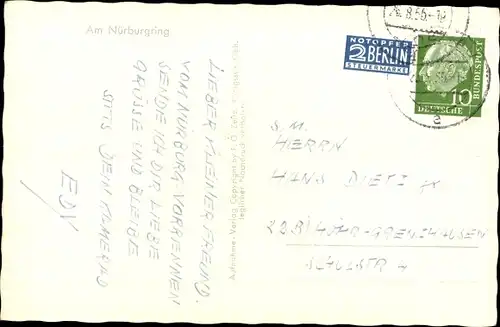 Am Nürburgring
LIEBER KLEINER FREUND.
VOM NÜRBURG-VORRENNEN
SENDE ICH DIR LIEBE
GRÜSSE UND BLEIBE
STTS DEIN KAMERAD
EDY
Aufnahme: Verlag Copyright by
NOTOPFER
2 BERLIN
STEUERMARKE
10
DEUTSCHE
BUNDESPOST
S. M.
HERRN
HANS DIETZ
HÖHR-GRENZHAUSEN
SCHULSTR 4